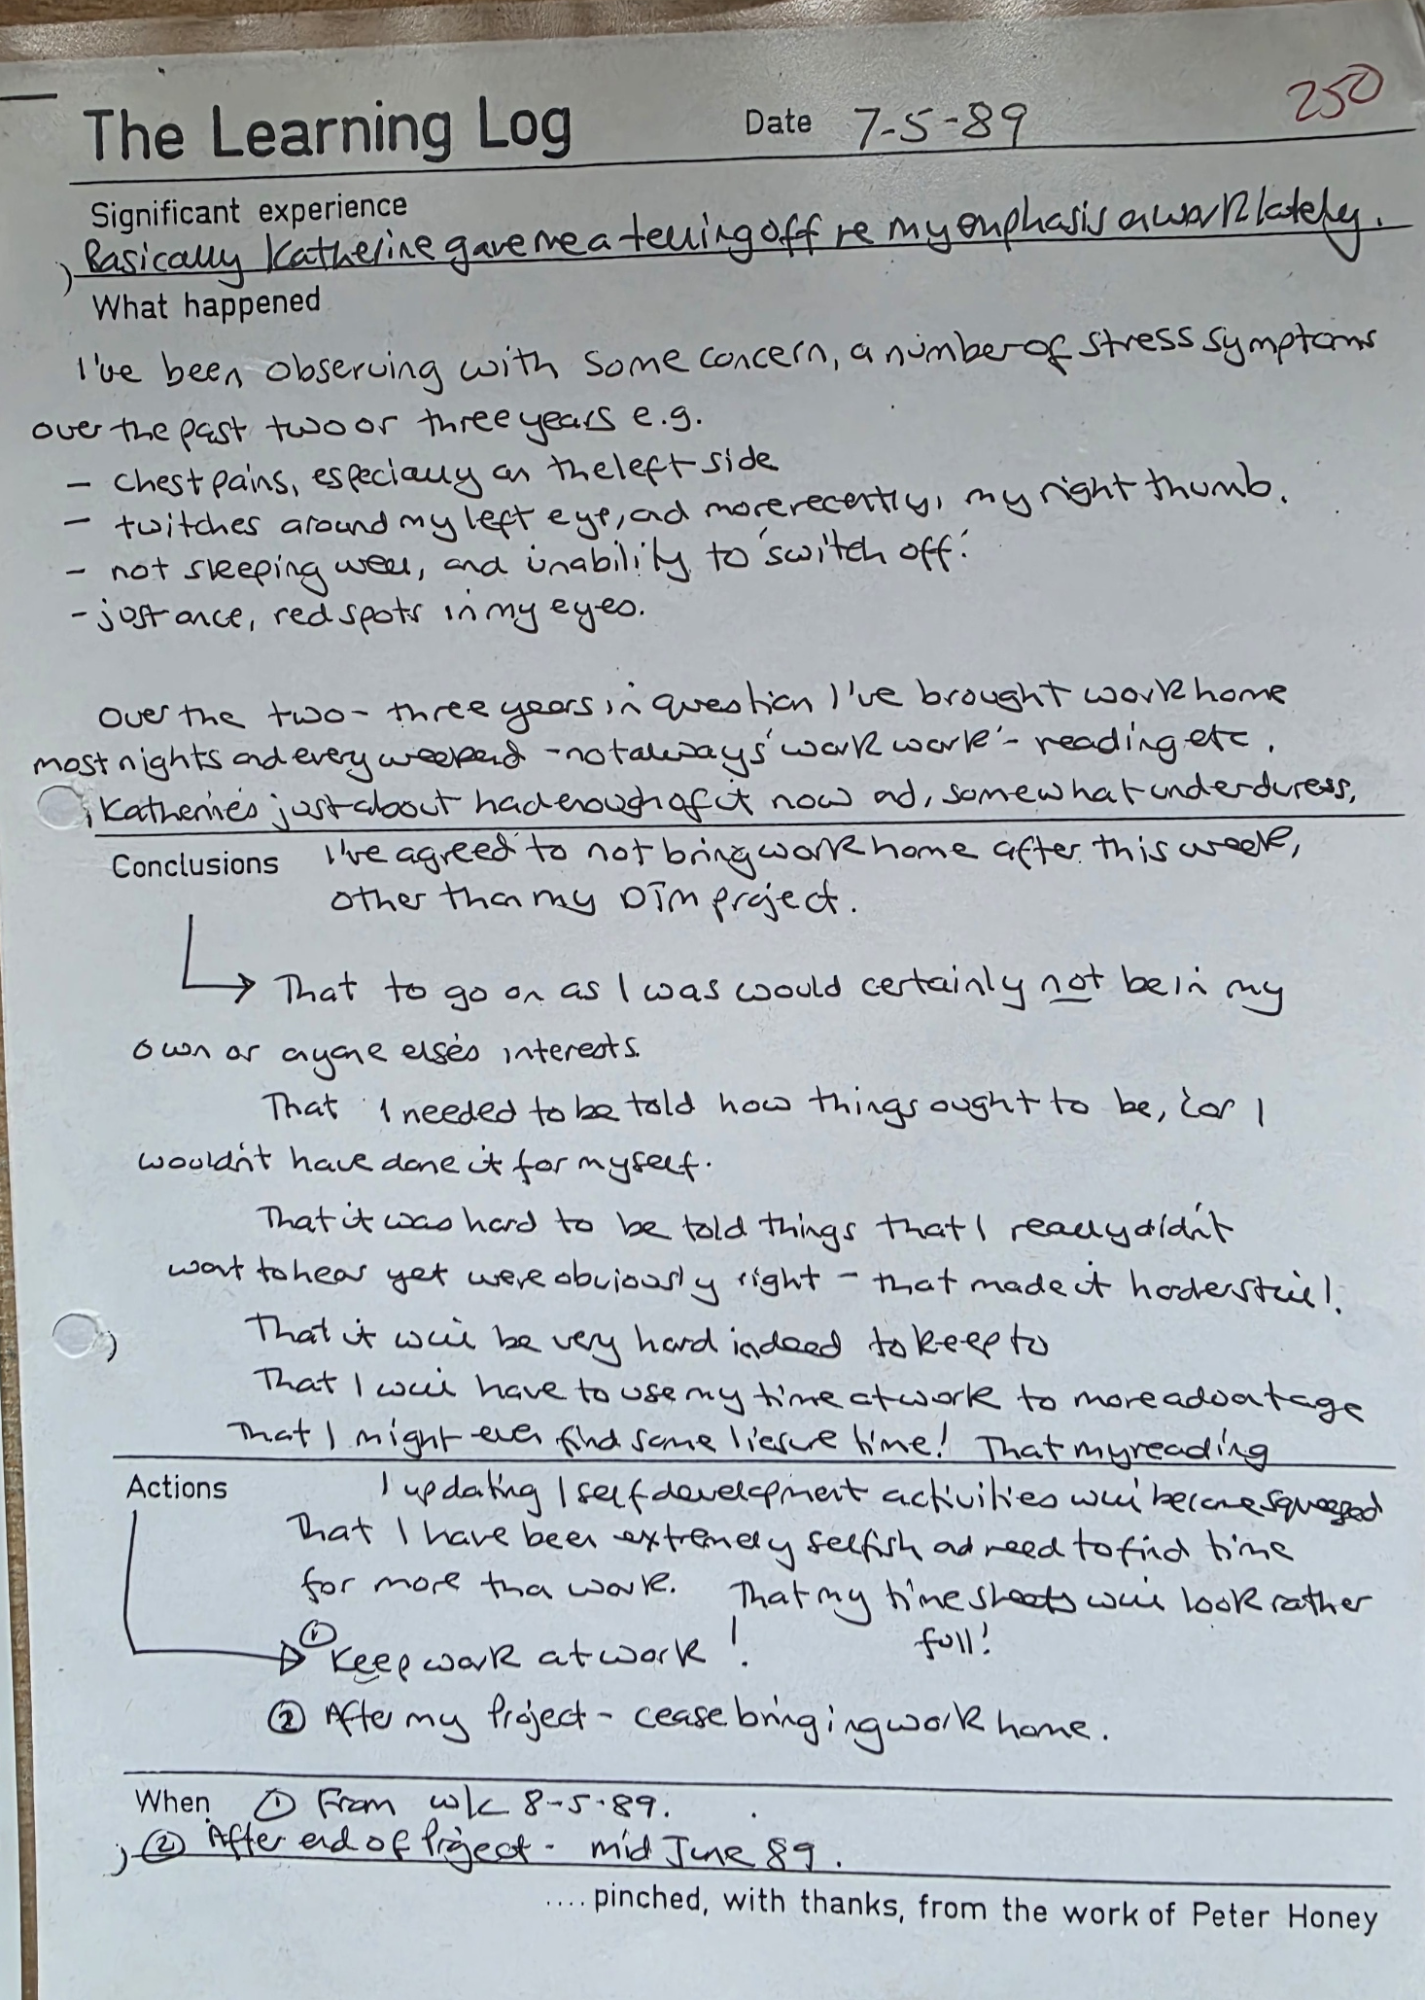 250
The Learning Log Date 7-5-89
Significant experience
Basically Katherine gave me a telling off re my emphasis on work lately.
What happened
I've been observing with some concern, a number of stress symptoms
over the past two or three years e.g.
- chest pains, especially on the left side
- twitches around my left eye, and more recently, my right thumb.
- not sleeping well, and inability to 'switch off'.
- just once, red spots in my eyes.
Over the two - three years in question I've brought work home
most nights and every weekend - not always 'work work' - reading etc.
Katherine's just about had enough of it now and, somewhat under duress,
Conclusions I've agreed to not bring work home after this week,
other than my DTM project.
→ That to go on as I was would certainly not be in my
own or anyone else's interests.
That I needed to be told how things ought to be, cos I
wouldn't have done it for myself.
That it was hard to be told things that I really didn't
want to hear yet were obviously right - that made it harder still!
That it will be very hard indeed to keep to
That I will have to use my time at work to more advantage
That I might even find some liesure time! That my reading
Actions / updating / self development activities will become squeezed
That I have been extremely selfish and need to find time
for more than work. That my time sheets will look rather
full!
→ ① Keep work at work!
② After my Project - cease bringing work home.
When ① From w/c 8-5-89.
② After end of Project - mid June 89.
.... pinched, with thanks, from the work of Peter Honey